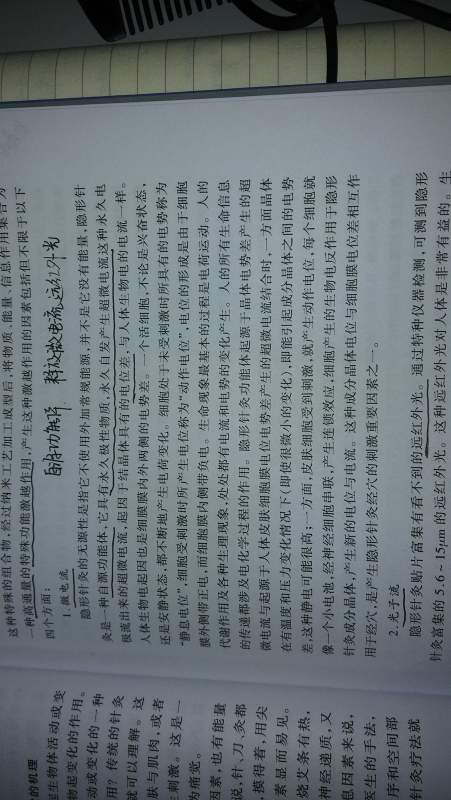 这种特殊的组合物,经过纳米工艺加工成型后,将物质、能量、信息作用集合为
一种高通量的特殊功能激越作用,产生这种激越作用的因素包括但不限于以下
四个方面:
自源功能体
超微电流 远红外光
1. 微电流
隐形针灸的无源性是指它不使用外加常规能源,并不是它没有能量,隐形针
灸是一种自源功能体,它具有永久极性物质,永久自发产生超微电流这种永久电
极流出来的超微电流,起因于结晶体具有的电位差,与人体生物电的电流一样。
人体生物电起因也是细胞膜内外两侧的电势差。一个活细胞,不论是兴奋状态,
还是安静状态,都不断地产生电荷变化。细胞处于未受刺激时所具有的电势称为
“静息电位”;细胞受刺激时所产生电位称为“动作电位”,电位的形成是由于细胞
膜外侧带正电,而细胞膜内侧带负电。生命现象最基本的过程是电荷运动。人的
代谢作用及各种生理现象,处处都有电流和电势的变化产生。人的所有生命信息
的传递都涉及电化学过程的作用。隐形针灸功能体起源于晶体电势差产生的超
微电流与起源于人体皮肤细胞膜电位电势差产生的超微电流结合时,一方面晶体
在有温度和压力变化情况下(即使很微小的变化),即能引起成分晶体之间的电势
差;这种静电可能很高;一方面,皮肤细胞受到刺激,就产生动作电位,每个细胞就
像一个小电池,经神经细胞串联,产生连锁效应,细胞产生的生物电反作用于隐形
针灸成分晶体,产生新的电位与电流。这种成分晶体电位与细胞膜电位差相互作
用于经穴,是产生隐形针灸经穴的刺激重要因素之一。
2. 光子流
隐形针灸贴片富集有看不到的远红外光。通过特种仪器检测,可测到隐形
针灸富集的 5.6~15μm 的远红外光。这种远红外光对人体是非常有益的。生
的机理
程生物体活动或变
物起变化的作用。
动或变化的一种
用?传统的针灸
就可以理解。这
肤与肌肉,或者
生刺激。这是一
为痛觉。
因素,也有能量
说,针、刀、灸都
摸得着,用尖
素显而易见。
烧艾条有热,
神经递质,又
息因素来说,
医生的手法,
序和空间部
针灸疗法就